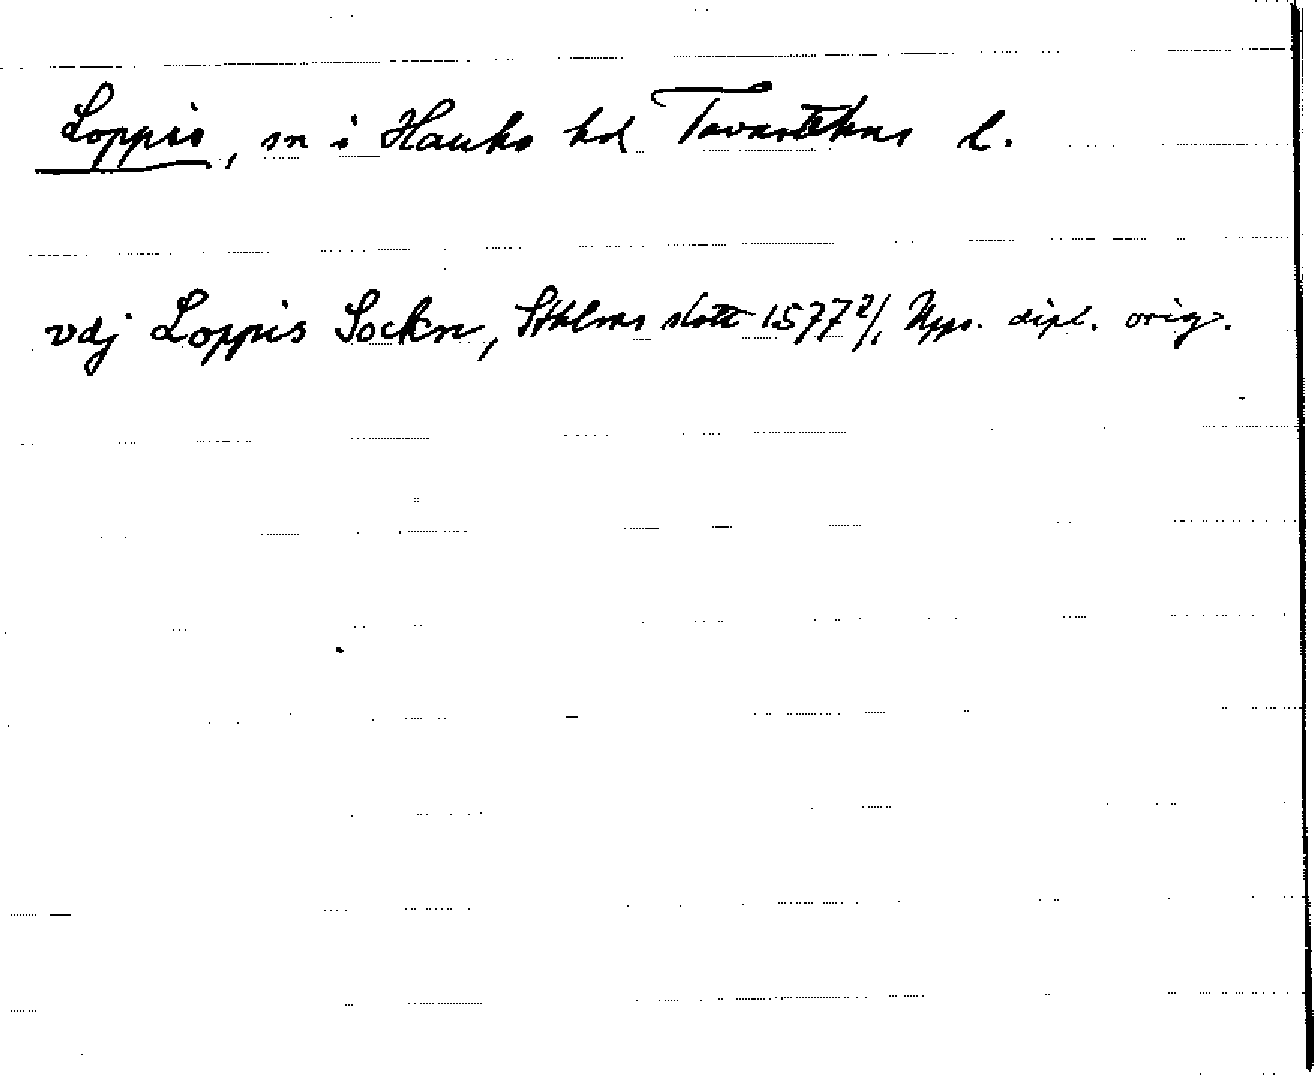 Loppis, sn i Hauho hd Tavastehus l.
vdj Loppis Sockn, Sthlms slott 1577 2/1, Upps. dipl. orig.